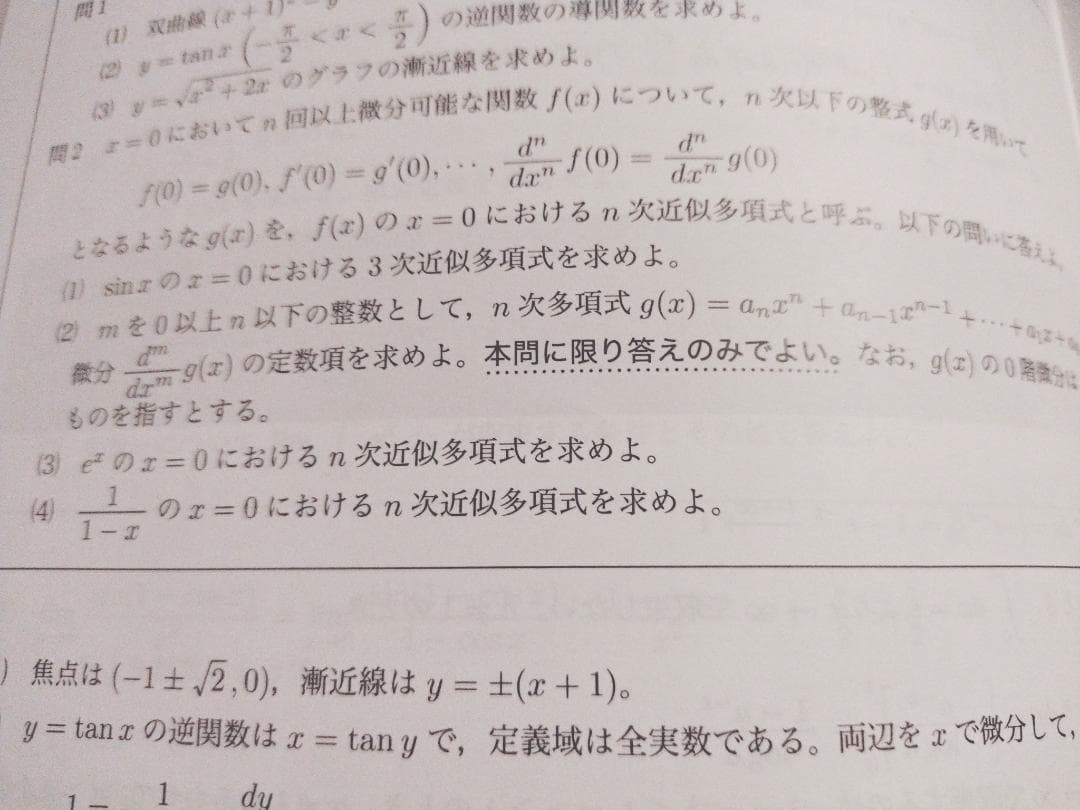 問1
(1) 双曲線 (x + 1)² − y
(2) y = tan x (−π/2 < x < π/2) の逆関数の導関数を求めよ。
(3) y = √(x² + 2x) のグラフの漸近線を求めよ。
問2 x = 0 において n 回以上微分可能な関数 f(x) について，n 次以下の整式 g(x) を用いて
f(0) = g(0), f′(0) = g′(0), ⋯ , dⁿ/dxⁿ f(0) = dⁿ/dxⁿ g(0)
となるような g(x) を，f(x) の x = 0 における n 次近似多項式と呼ぶ。以下の問いに答えよ。
(1) sin x の x = 0 における 3 次近似多項式を求めよ。
(2) m を 0 以上 n 以下の整数として，n 次多項式 g(x) = aₙxⁿ + aₙ₋₁xⁿ⁻¹ + ⋯ + a₁x + a₀
微分 dᵐ/dxᵐ g(x) の定数項を求めよ。本問に限り答えのみでよい。なお，g(x) の 0 階微分は
ものを指すとする。
(3) eˣ の x = 0 における n 次近似多項式を求めよ。
(4) 1/(1 − x) の x = 0 における n 次近似多項式を求めよ。
) 焦点は (−1 ± √2, 0)，漸近線は y = ±(x + 1)。
y = tan x の逆関数は x = tan y で，定義域は全実数である。両辺を x で微分して，
1 = 1 dy